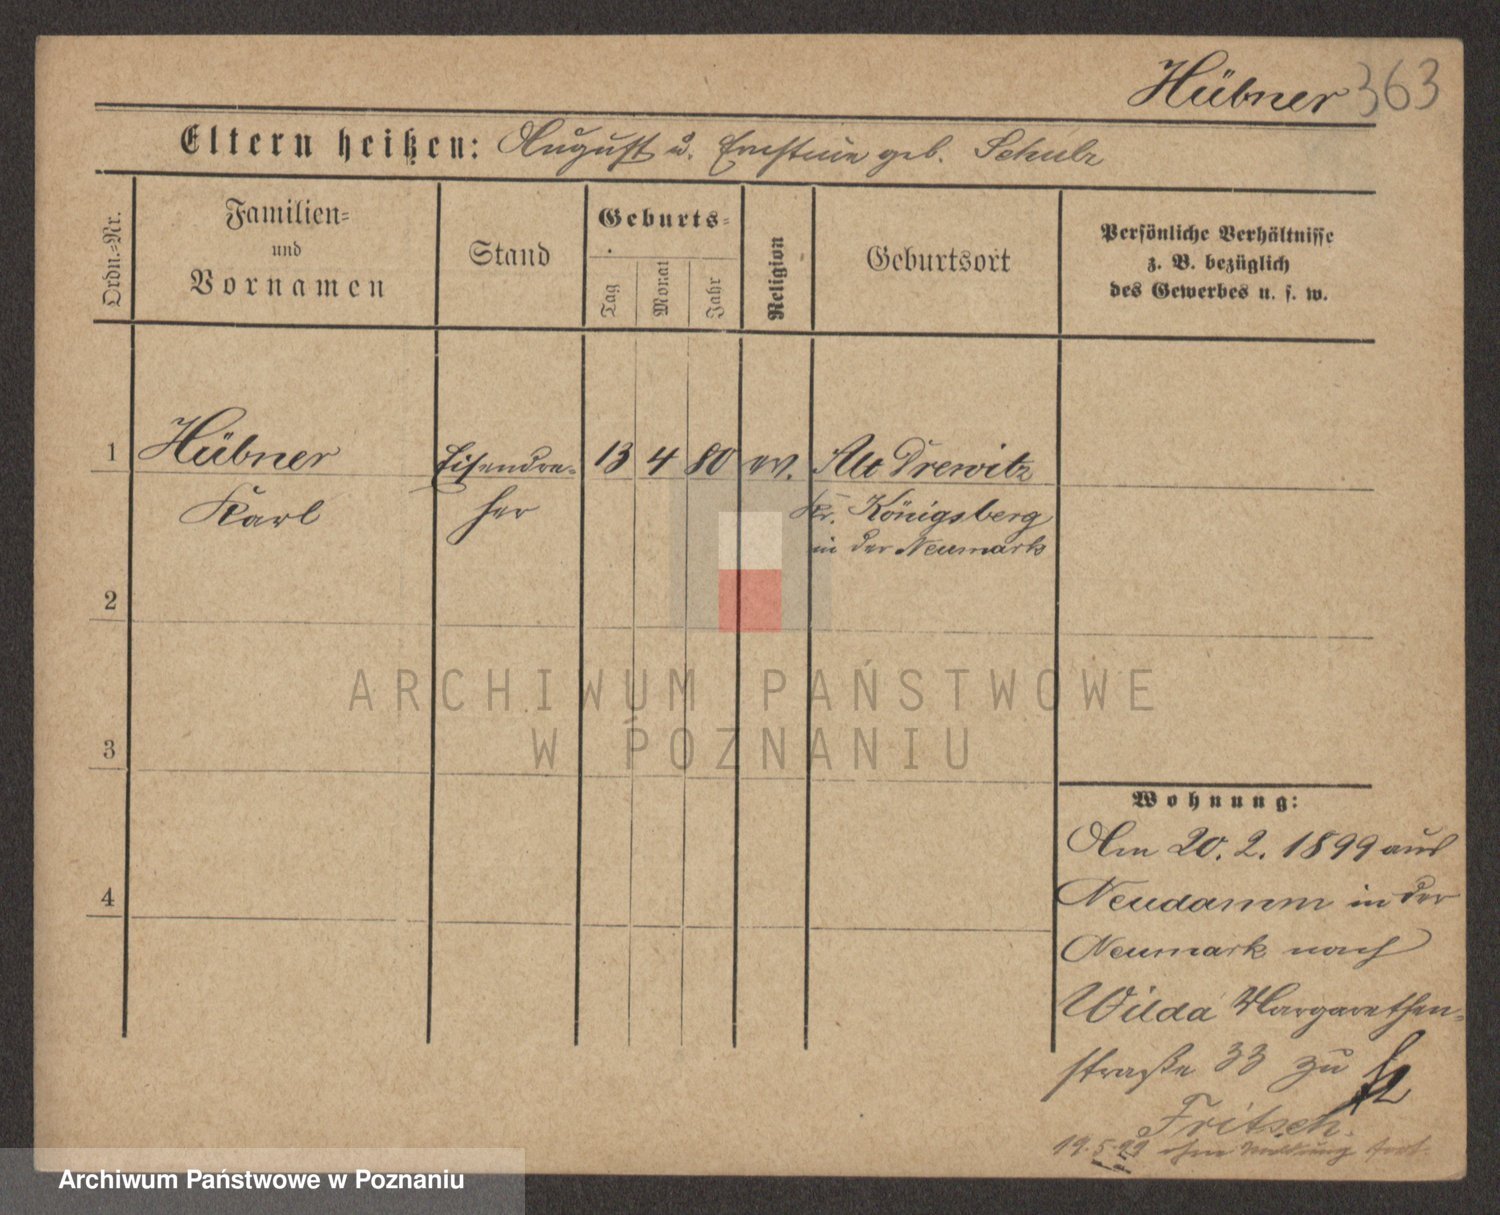 Hübner 363
Eltern heißen: August u. Ernstine geb. Schulz
Ordn.-Nr.
Familien-
und
Vornamen
Stand
Geburts-
Tag
Monat
Jahr
Religion
Geburtsort
Persönliche Verhältnisse
z. B. bezüglich
des Gewerbes u. s. w.
1 Hübner Eisendre- 13 4 80 ev. Alt Drewitz
Karl her Kr. Königsberg
in der Neumark
2
3
4
ARCHIWUM PAŃSTWOWE
W POZNANIU
Wohnung:
Am 20. 2. 1899 aus
Neudamm in der
Neumark nach
Wilda Margarethen-
straße 33 zu
Fritsch.
19. 5. 99 ohne Meldung fort.
Archiwum Państwowe w Poznaniu